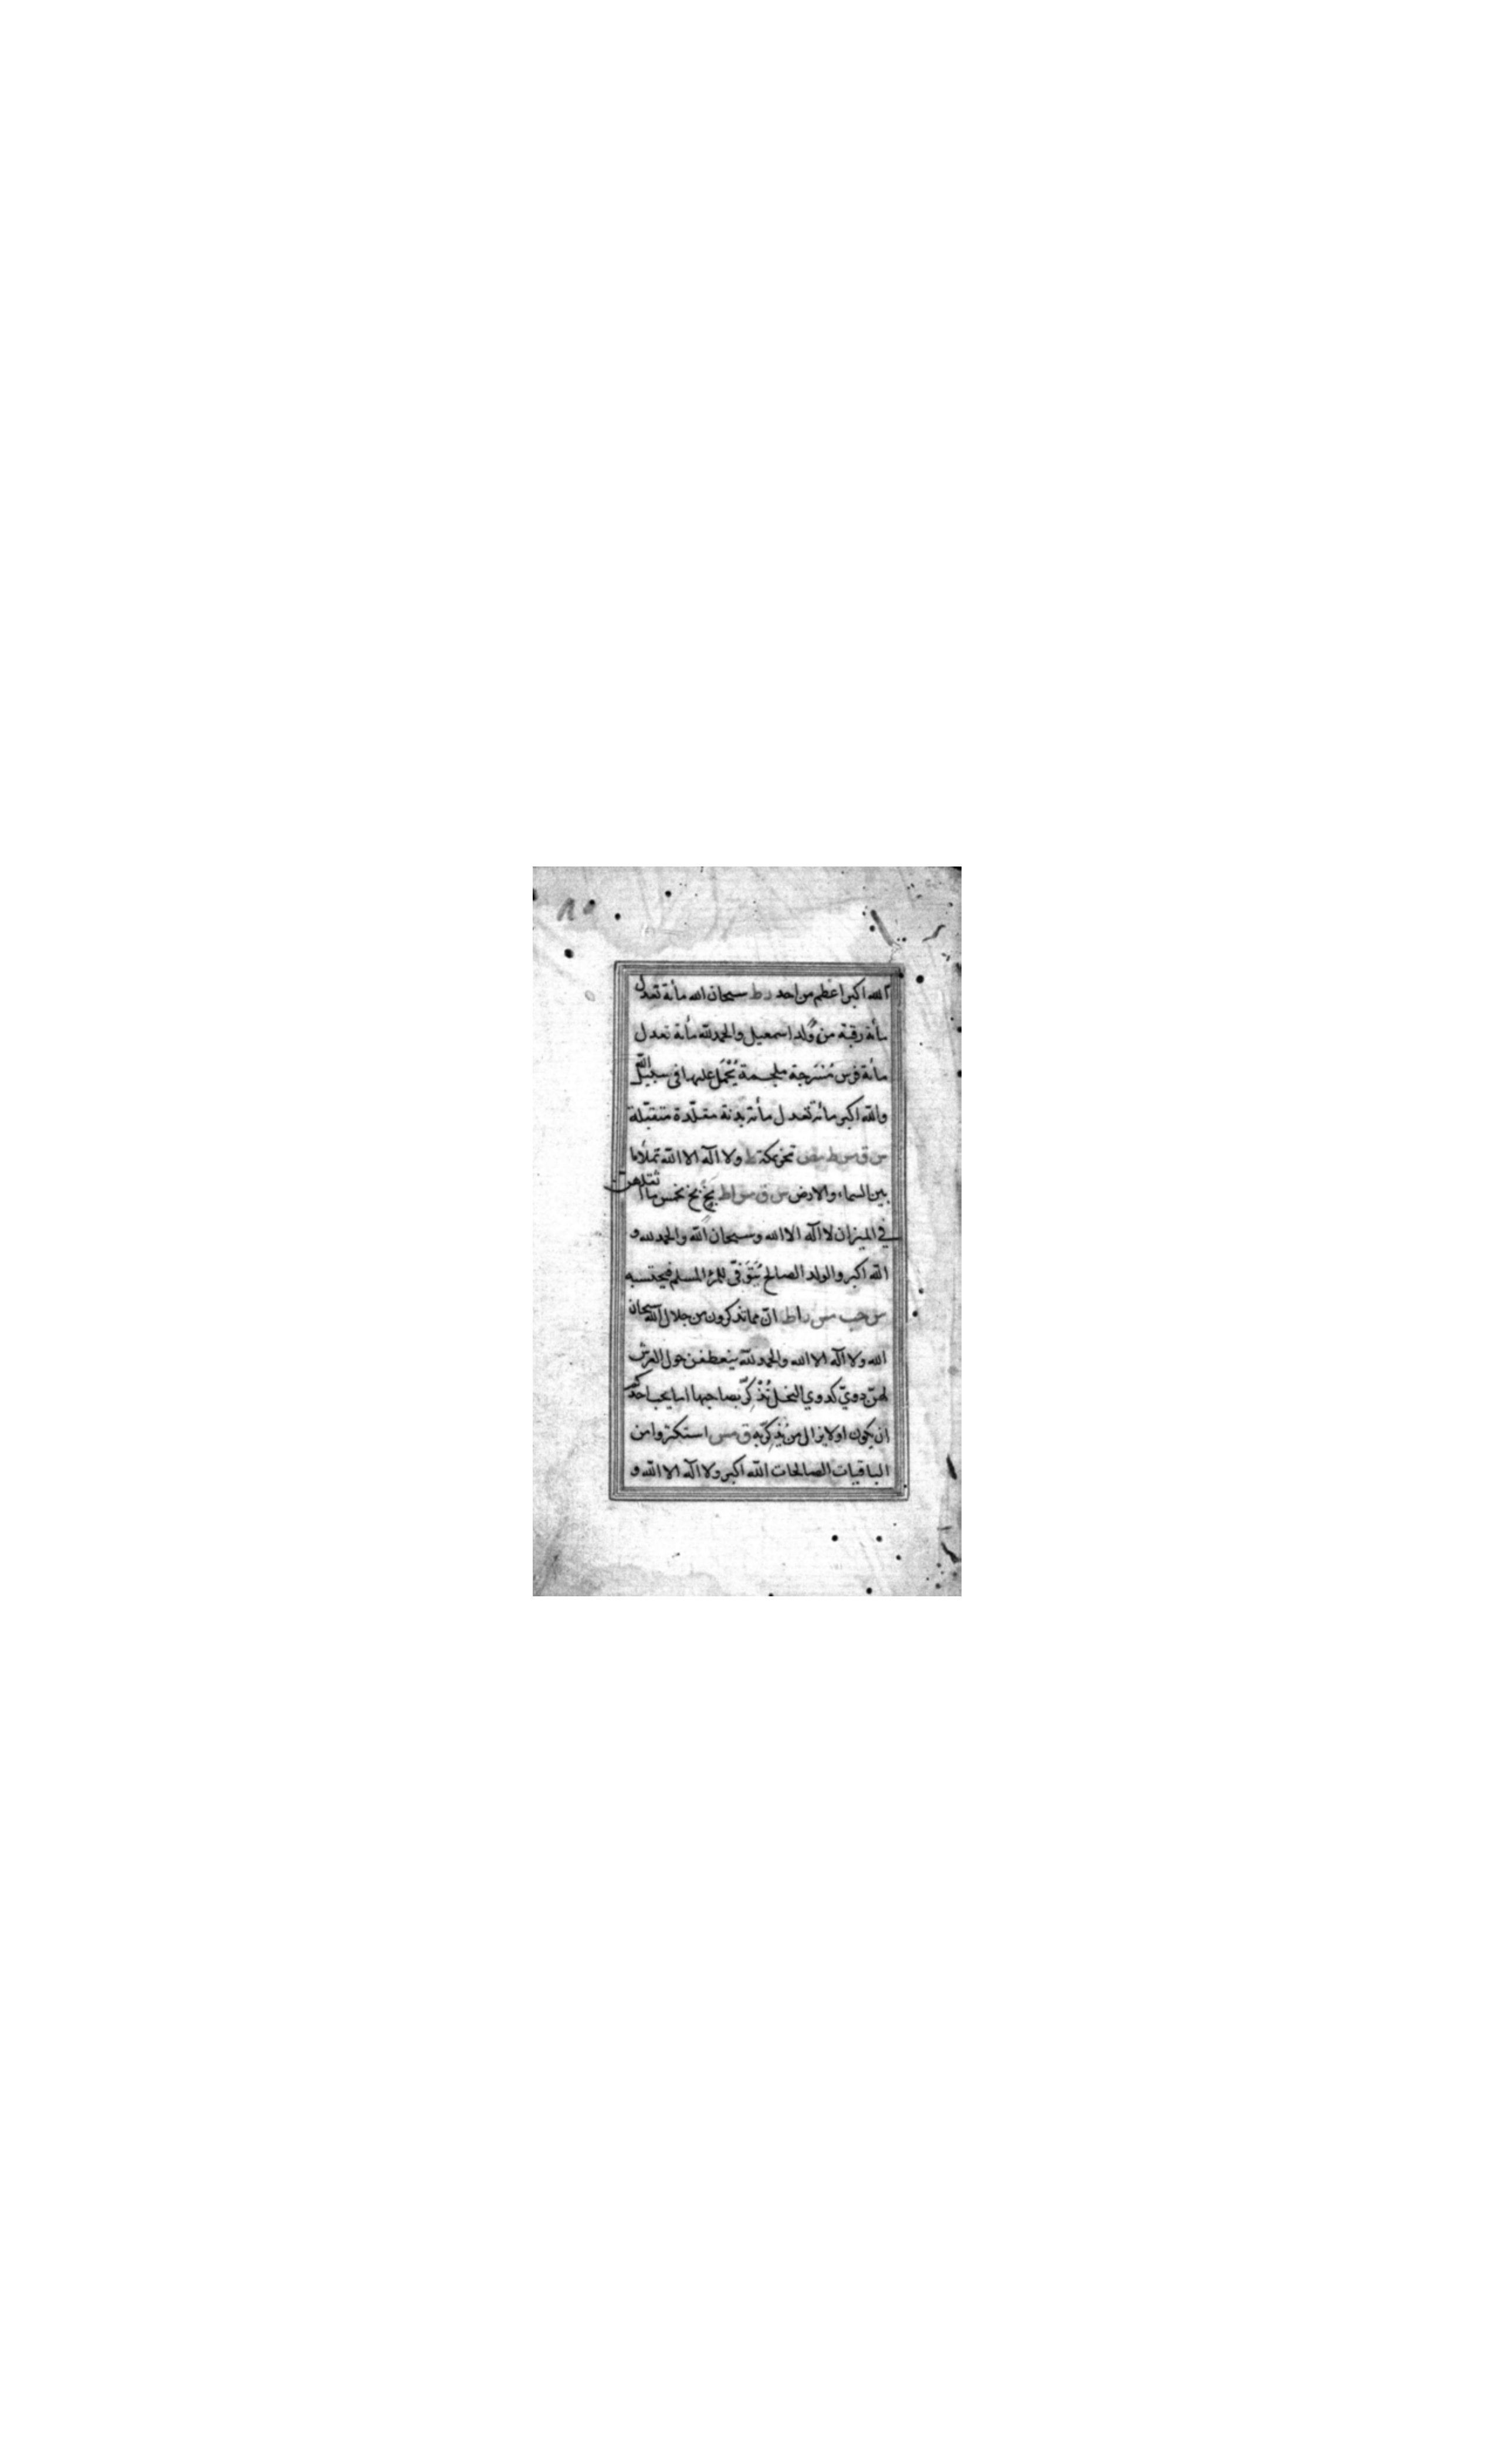 ٨٥
الله اكبر اعظم من احد ر ط سبحان الله مأئة تعدل
مأئة رقبة من ولد اسمعيل والحمد لله مأئة تعدل
مأئة فرس مُسْرَجة ملجمة يُحْمَل عليها فى سبيل الله
والله اكبر مأئة تعدل مأئة بدنة مقلّدة متقبّلة
س ق مس ط مص تنحر بمكة ط ولا اله الا الله تملأ ما
بين السماء والارض س ق مس ا ط بخ بخ بخمس ما اثقلهن
في الميزان لا اله الا الله وسبحان الله والحمد لله و
الله اكبر والولد الصالح يُتَوَفّى للمرء المسلم فيحتسبه
س حب مس ر ا ط انّ مما تذكرون من جلال الله سبحان
الله ولا اله الا الله والحمد لله ينعطفن حول العرش
لهنّ دويّ كدوي النحل تُذْكِرّ بصاحبها اما يحب احدكم
ان يكون او لا يزال من يُذكِرّ به ق مس استكثروا من
الباقيات الصالحات الله اكبر ولا اله الا الله و